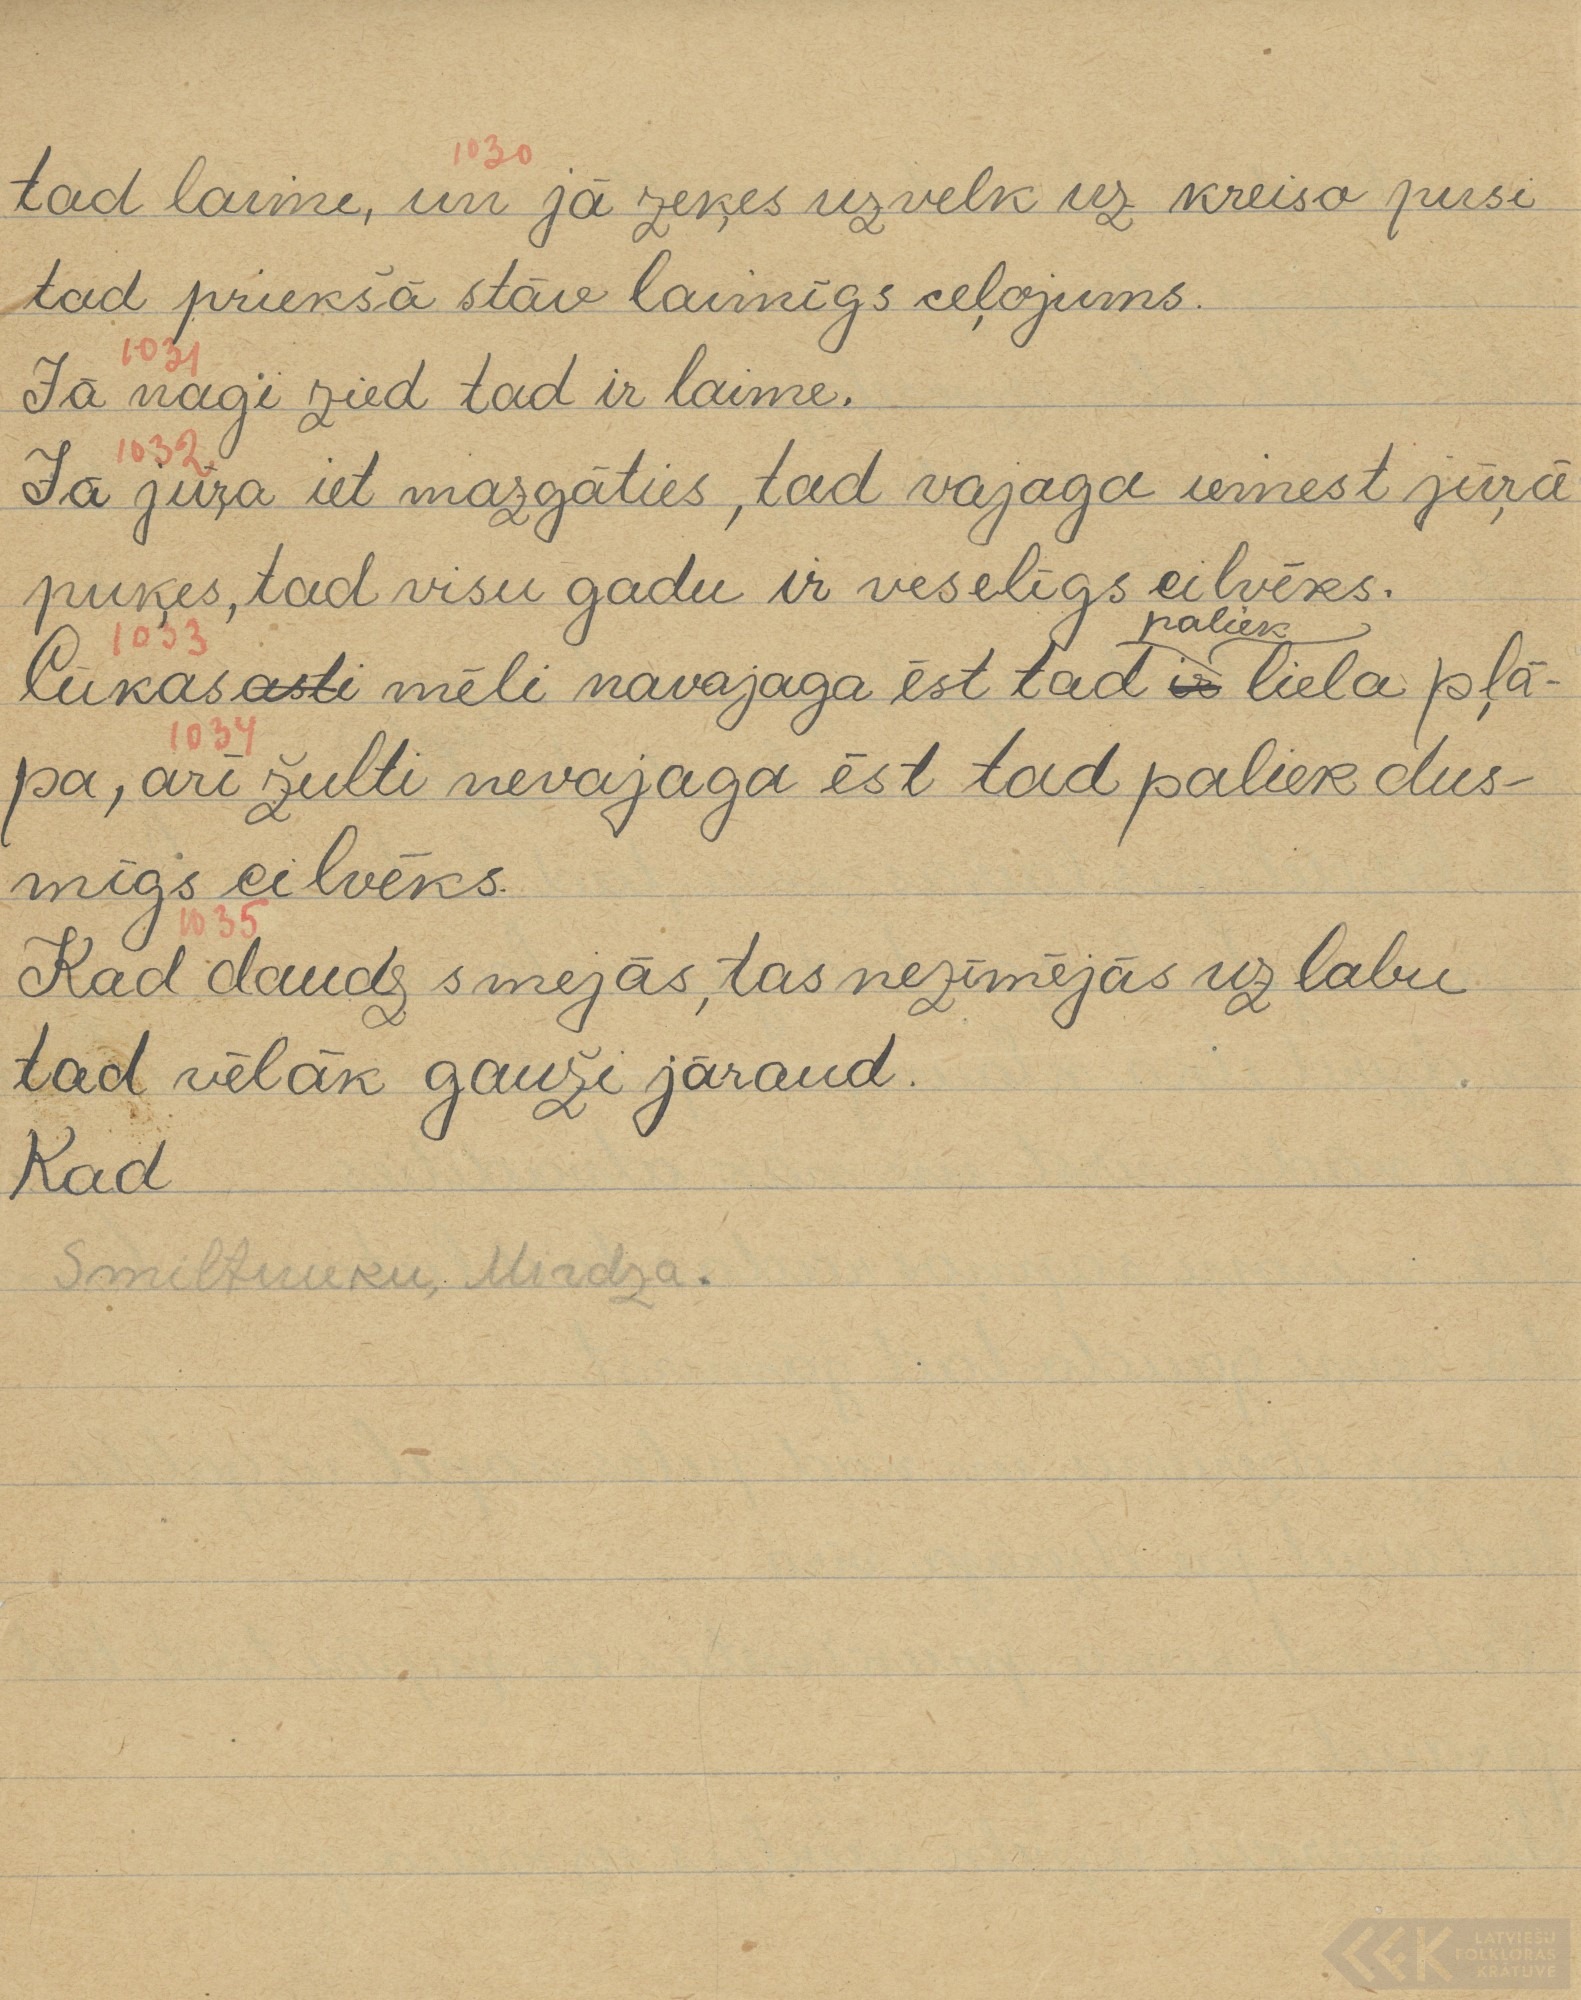 1030
tad laime, un jā zeķes uzvelk uz kreiso pusi
tad priekšā stāv laimīgs ceļojums.
1031
Jā nagi zied tad ir laime.
1032
Jā jūŗa iet mazgāties, tad vajaga iemest jūŗā
puķes, tad visu gadu ir veselīgs cilvēks.
1033 paliek
Cūkas asti mēli navajaga ēst tad ir liela pļā-
1034
pa, arī žulti nevajaga ēst tad paliek dus-
mīgs cilvēks.
1035
Kad daudz smejās, tas nezīmējās uz labu
tad vēlāk gauži jāraud.
Kad
Mirdza.
LATVIEŠU
FOLKLORAS
KRĀTUVE